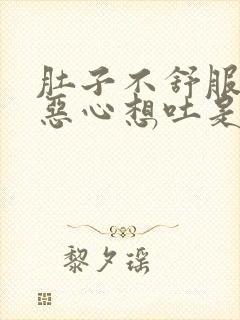 肚子不舒服
惡心想吐是
黎夕瑶